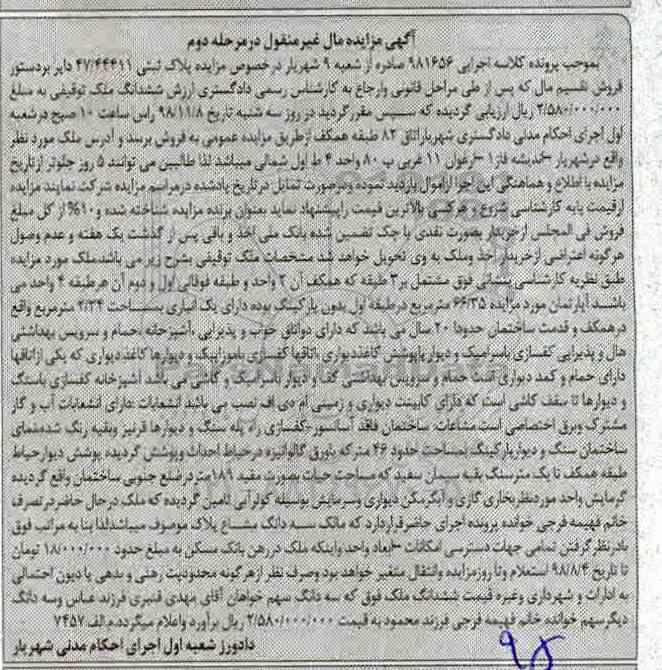 آگهی مزایده مال غیرمنقول درمرحله دوم
بموجب پرونده کلاسه اجرایی ۹۸۱۶۵۶ صادره از شعبه ۹ شهریار درخصوص مزایده پلاک ثبتی ۴۷/۴۴۴۱۱ دایر بردستور
فروش تقسیم مال که پس از طی مراحل قانونی وارجاع به کارشناس رسمی دادگستری ارزش ششدانگ ملک توقیفی به مبلغ
۲/۵۸۰/۰۰۰/۰۰۰ ریال ارزیابی گردیده که سپس مقررگردید در روز سه شنبه تاریخ ۹۸/۱۱/۸ راس ساعت ۱۰ صبح درشعبه
اول اجرای احکام مدنی دادگستری شهریاراتاق ۸۲ طبقه همکف ازطریق مزایده عمومی به فروش برسد و آدرس ملک مورد نظر
واقع درشهریار –اندیشه فاز۱ –ارغوان ۱۱ غربی پ ۸۰ واحد ۴ ط اول شمالی میباشد لذا طالبین می توانند ۵ روز جلوتر ازتاریخ
مزایده با اطلاع و هماهنگی این اجرا ازاموال بازدید نموده ودرصورت تمایل درتاریخ یادشده درمراسم مزایده شرکت نمایند مزایده
ازقیمت پایه کارشناسی شروع و هرکسی بالاترین قیمت راپیشنهاد نماید بعنوان برنده مزایده شناخته شده و۱۰% از کل مبلغ
فروش فی المجلس ازخریدار بصورت نقدی یا چک تضمین شده بانک ملی اخذ و باقی پس از گذشت یک هفته و عدم وصول
هرگونه اعتراضی ازخریدار اخذ وملک به وی تحویل خواهد شد مشخصات ملک توقیفی بشرح زیر می باشد.ملک مورد مزایده
طبق نظریه کارشناسی بنشانی فوق مشتمل بر۳ طبقه که همکف آن ۲ واحد و طبقه فوقانی اول و دوم آن هرطبقه ۴ واحد می
باشد آپارتمان مورد مزایده ۶۶/۳۵ مترمربع درطبقه اول بدون پارکینگ بوده دارای یک انباری بمساحت ۲/۲۴ مترمربع واقع
درهمکف و قدمت ساختمان حدودا ۲۰ سال می باشد که دارای دواتاق خواب و پذیرایی ،آشپزخانه ،حمام و سرویس بهداشتی
هال و پذیرایی کفسازی باسرامیک و دیوار باپوشش کاغذدیواری ،اتاقها کفسازی باموزاییک و دیوارها کاغذدیواری که یکی ازاتاقها
دارای حمام و کمد دیواری است حمام و سرویس بهداشتی کف و دیوار باسرامیک و کاشی می باشد آشپزخانه کفسازی باسنگ
و دیوارها تا سقف کاشی است که دارای کابینت دیواری و زمینی ام دی اف نصب می باشد انشعابات :دارای انشعابات آب و گاز
مشترک وبرق اختصاصی است.مشاعات: ساختمان فاقد آسانسور-کفسازی راه پله سنگ و دیوارها قرنیز وبقیه رنگ شده،نمای
ساختمان سنگ و دیوارپارکینگ بمساحت حدود ۴۶ مترکه باورق گالوانیزه درحیاط احداث وپوشش گردیده پوشش دیوارحیاط
طبقه همکف تا یک مترسنگ بقیه سیمان سفید که مساحت حیاط بصورت مفید ۱۸۹متردرضلع جنوبی ساختمان واقع گردیده
گرمایش واحد موردنظربخاری گازی و آبگرمکن دیواری وسرمایش بوسیله کولرآبی تامین گردیده که ملک درحال حاضردرتصرف
خانم فهیمه فرجی خوانده پرونده اجرای حاضرقراردارد که مالک سه دانگ مشاع پلاک موصوف میباشدلذا بنا به مراتب فوق
بادرنظرگرفتن تمامی جهات دسترسی امکانات –ابعاد واحد واینکه ملک دررهن بانک مسکن به مبلغ حدود ۱۸/۰۰۰/۰۰۰ تومان
تا تاریخ ۹۸/۸/۴ استعلام وتا روزمزایده وانتقال متغیر خواهد بود وصرف نظر ازهرگونه محدودیت رهنی و بدهی یا دیون احتمالی
به ادارات و شهرداری وغیره قیمت ششدانگ ملک فوق که سه دانگ سهم خواهان آقای مهدی قنبری فرزند عباس وسه دانگ
دیگرسهم خوانده خانم فهیمه فرجی فرزند محمود به قیمت ۲/۵۸۰/۰۰۰/۰۰۰ ریال برآورد واعلام میگردد.م.الف.۷۴۵۷
دادورز شعبه اول اجرای احکام مدنی شهریار